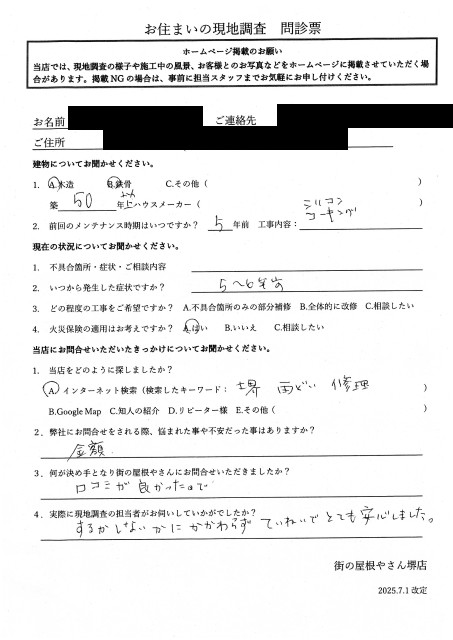 お住まいの現地調査 問診票
ホームページ掲載のお願い
当店では、現地調査の様子や施工中の風景、お客様とのお写真などをホームページに掲載させていただく場
合があります。掲載NGの場合は、事前に担当スタッフまでお気軽にお申し付けください。
お名前 ご連絡先
ご住所
建物についてお聞かせください。
1. A.木造 B.鉄骨 C.その他（ ）
築 50 年以上 ハウスメーカー（ ）
2. 前回のメンテナンス時期はいつですか？ 5 年前 工事内容： シリコン コーキング
現在の状況についてお聞かせください。
1. 不具合箇所・症状・ご相談内容
2. いつから発生した症状ですか？ 5～6年前
3. どの程度の工事をご希望ですか？ A.不具合箇所のみの部分補修 B.全体的に改修 C.相談したい
4. 火災保険の適用はお考えですか？ A.はい B.いいえ C.相談したい
当店にお問合せいただいたきっかけについてお聞かせください。
1. 当店をどのように探しましたか？
A. インターネット検索（検索したキーワード： 堺 雨どい 修理 ）
B.Google Map C.知人の紹介 D.リピーター様 E.その他（ ）
2. 弊社にお問合せをされる際、悩まれた事や不安だった事はありますか？
金額
3. 何が決め手となり街の屋根やさんにお問合せいただきましたか？
口コミが良かったので
4. 実際に現地調査の担当者がお伺いしていかがでしたか？
するかしないかにかかわらず ていねいで とても安心しました。
街の屋根やさん堺店
2025.7.1 改定